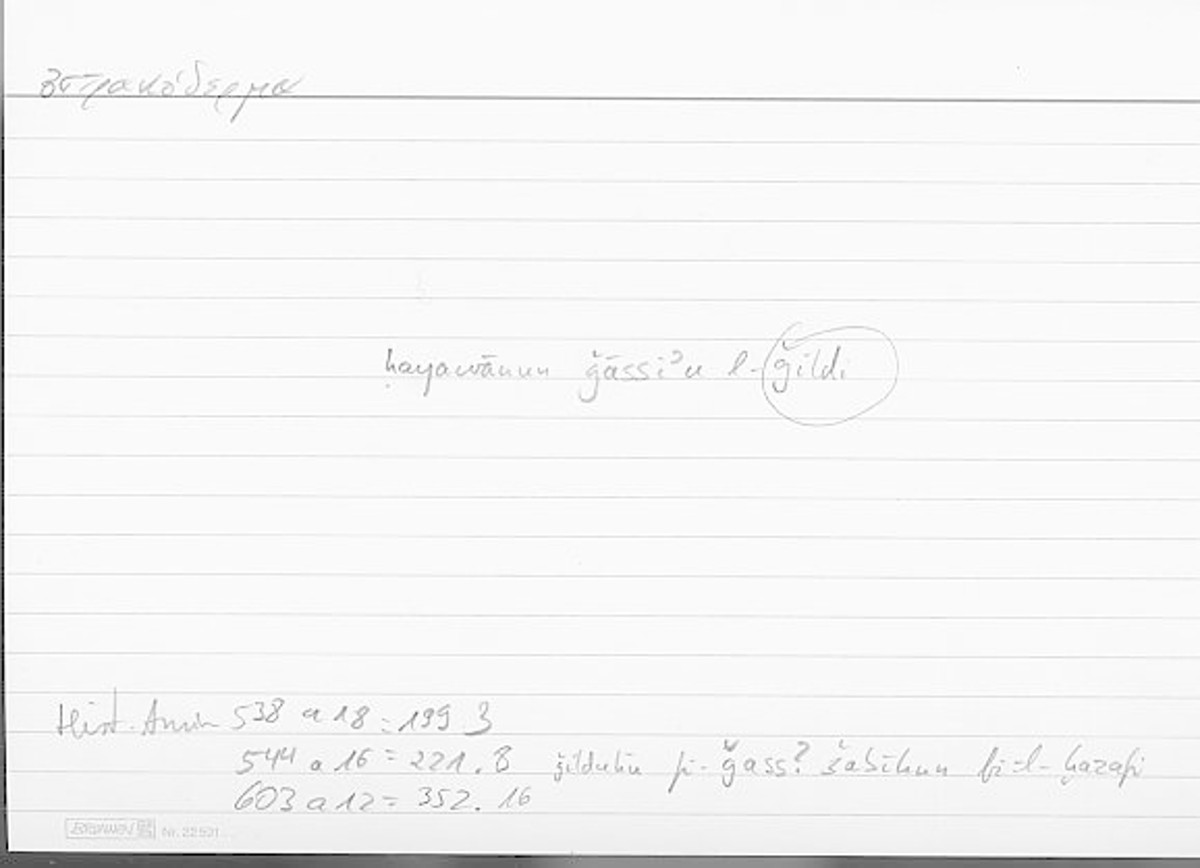 ὀστρακόδερμα
ḥayawānun ǧāssiʾu l-ǧildi
Hist. Anim 538 a 18 = 199 3
544 a 16 = 221. 8 ǧilduhū ǧass? šabīhun bi-l-ḫazafi
603 a 12 = 352. 16
BRUNNEN Nr. 22 501